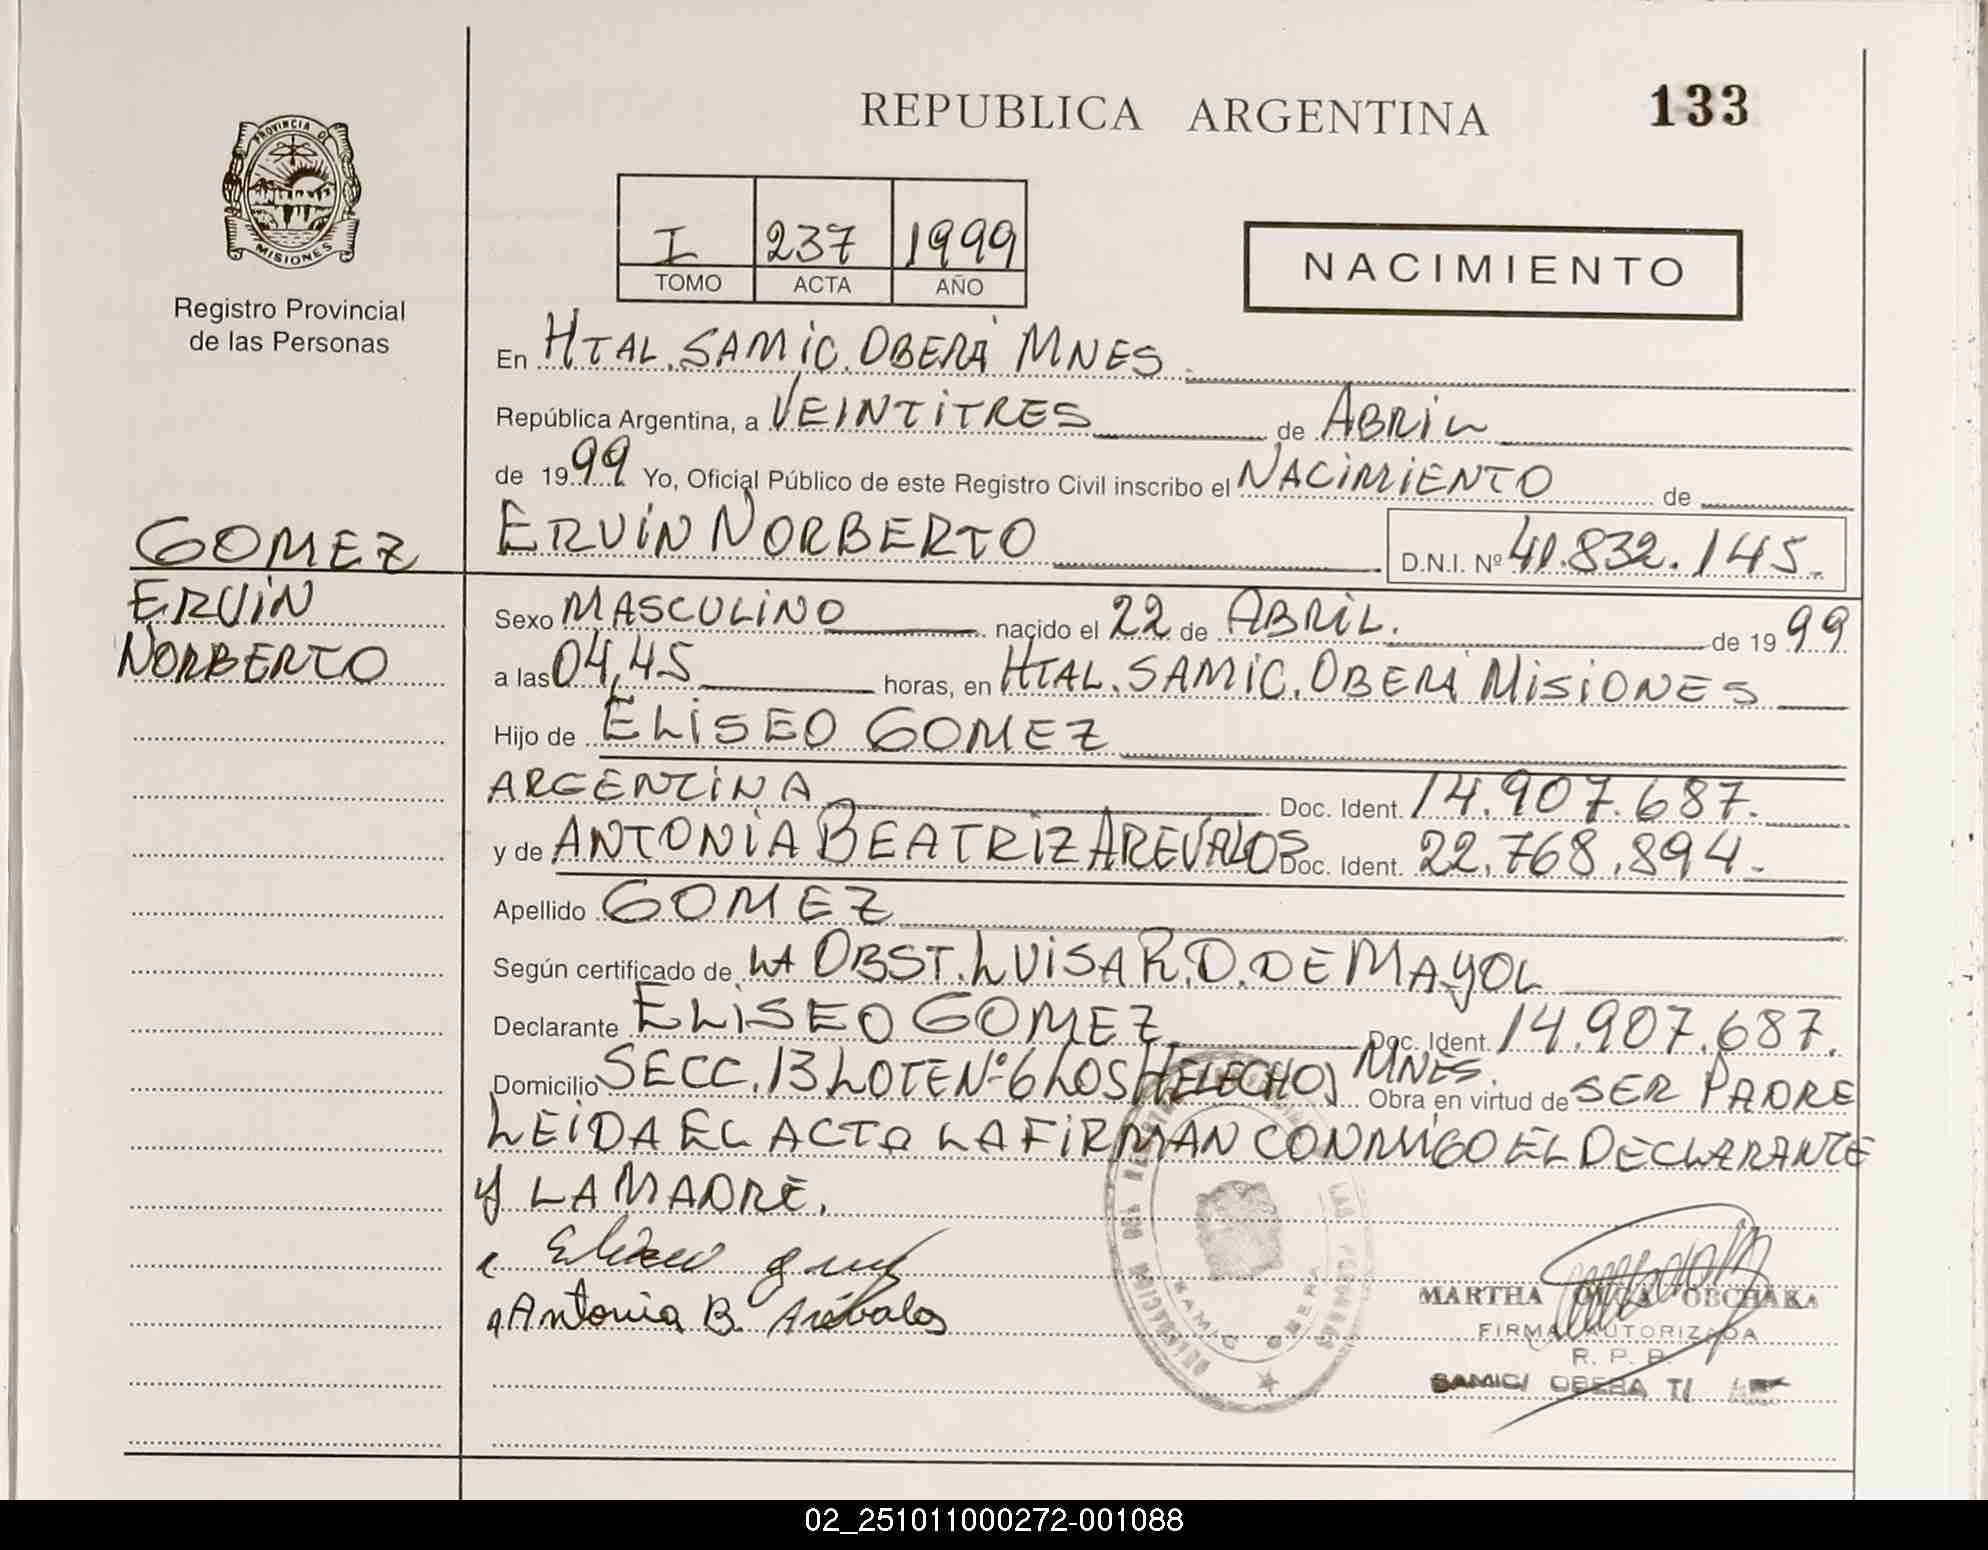 REPUBLICA ARGENTINA
133
PROVINCIA DE
MISIONES
Registro Provincial
de las Personas
I 237 1999
TOMO ACTA AÑO
NACIMIENTO
En HTAL. SAMIC. OBERÁ MNES
República Argentina, a VEINTITRES de ABRIL
de 1999 Yo, Oficial Público de este Registro Civil inscribo el NACIMIENTO de
ERVIN NORBERTO D.N.I. Nº 41.832.145.
GOMEZ
ERVIN
NORBERTO
Sexo MASCULINO nacido el 22 de ABRIL. de 1999
a las 04,45 horas, en HTAL. SAMIC. OBERÁ MISIONES
Hijo de ELISEO GOMEZ
ARGENTINA Doc. Ident. 14.907.687.
y de ANTONIA BEATRIZ AREVALOS Doc. Ident. 22.768.894.
Apellido GOMEZ
Según certificado de LA OBST. LUISA R. D. DE MAYOL
Declarante ELISEO GOMEZ Doc. Ident. 14.907.687.
Domicilio SECC. 13 LOTE Nº 6 LOS HELECHOS MNES. Obra en virtud de SER PADRE
LEIDA EL ACTA LA FIRMAN CONMIGO EL DECLARANTE
Y LA MADRE.
Antonia B. Arébalos
SAMIC OBERA
MARTHA OLGA OBCHAKA
FIRMA AUTORIZADA
R. P. P.
SAMIC/ OBERA
02_251011000272-001088